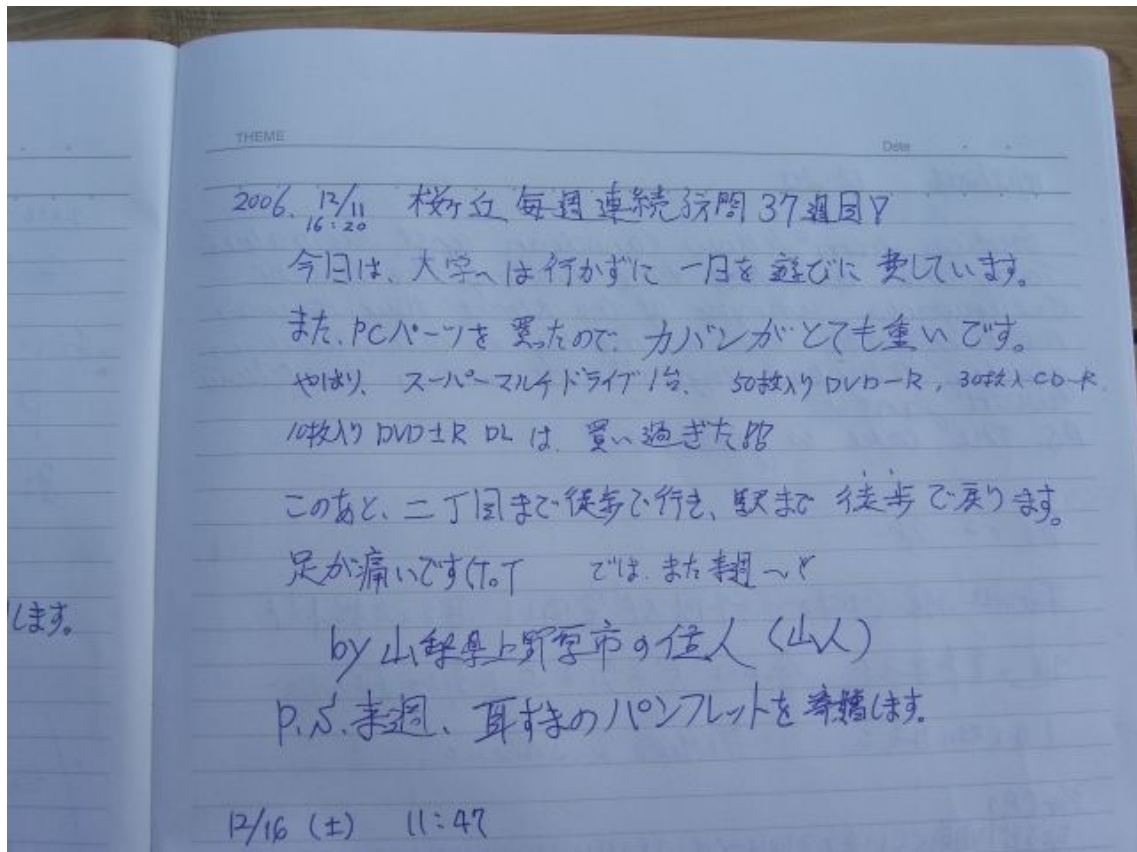 THEME
Date
2006. 12/11 桜ヶ丘 毎週連続訪問37週目♥
16:20
今日は、大学へは行かずに 一日を遊びに費しています。
また、PCパーツを買ったので、カバンがとても重いです。
やはり、スーパーマルチドライブ1台、50枚入りDVD-R, 30枚入CD-R,
10枚入りDVD±R DLは、買い過ぎた!?
このあと、二丁目まで徒歩で行き、駅まで徒歩で戻ります。
足が痛いです(T。T では、また来週〜♥
by 山梨県上野原市の住人(山人)
P.S. 来週、耳すまのパンフレットを寄贈します。
します。
12/16 (土) 11:47